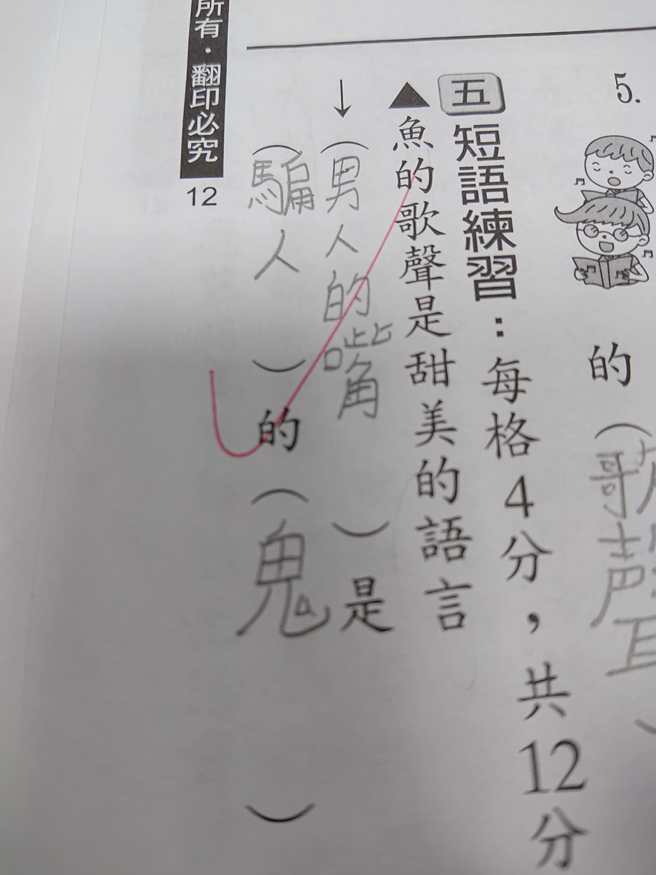 5.
的（歌聲）
五 短語練習：每格4分，共12分
▲魚的歌聲是甜美的語言
↓（男人的嘴）是
（騙人）的（鬼）
所有・翻印必究
12